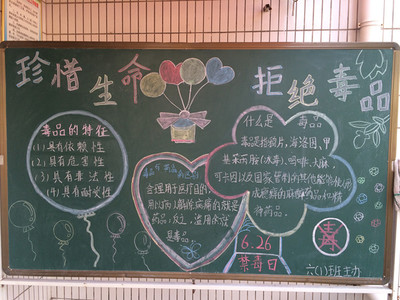 珍惜生命 拒绝毒品
毒品的特征
(1)具有依赖性
(2)具有危害性
(3)具有非法性
(4)具有耐受性
合理用于医疗目的
用以预防解除病痛的就是
药品，反之，滥用你就
是毒品
什么是 毒品
毒品是指鸦片，海洛因，甲
基苯丙胺（冰毒）吗啡、大麻，
可卡因以及国家管制的其他能够使人形
成瘾癖的麻醉药品和精
神药品。
6.26
禁毒日
毒
六(1)班主办